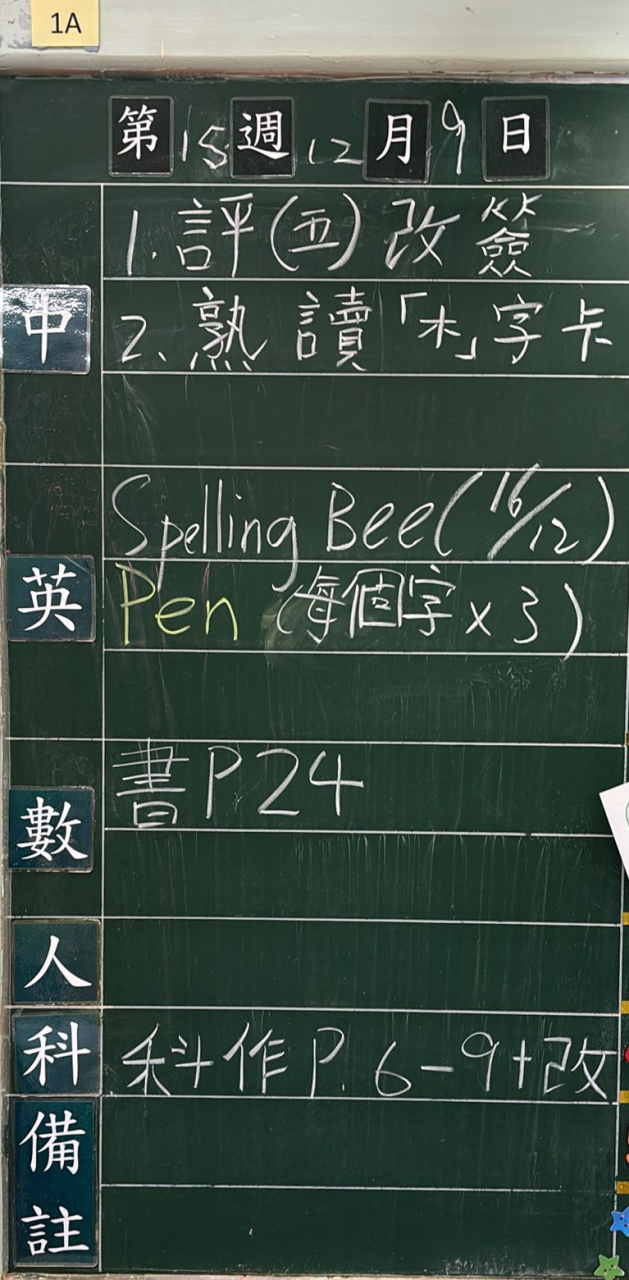 1A
第15週12月9日
中
1.評(五)改簽
2、熟讀「木」字卡
英
Spelling Bee(16/12)
Pen (每個字x3)
數
書P.24
人
科
科作P.6-9+改
備註